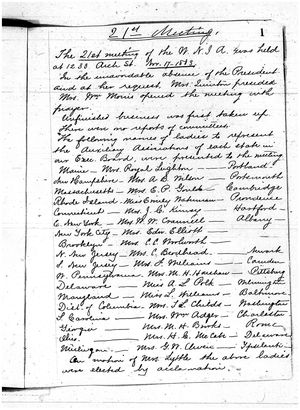 21st Meeting.
1
The 21st meeting of the W.N.I.A. was held
at 1233 Arch St. Nov. 17-1883.
In the unavoidable absence of the President
and at her request, Mrs. Quinton presided
Mrs. Wm Morris opened the meeting with
prayer.
Unfinished business was first taken up
there were no reports of committees.
The following names of ladies to represent
the Auxiliary Associations of each state in
our Exec. Board, were presented to the meeting
Maine — Mrs. Royal Leighton — Portland
New Hampshire — Mrs. A. C. — Portsmouth
Massachusetts — Mrs. E. P. Gould — Cambridge
Rhode Island — Miss Emily Waterman — Providence
Connecticut — Mrs. J. C. Kinney — Hartford
E. New York — Mrs. W. W. — Albany
New York City — Mrs. Edw. Elliott
Brooklyn — Mrs. C. C. Wolworth
N. New Jersey — Mrs. C. — Newark
S. New Jersey — Mrs. S. Williams — Camden
W. Pennsylvania — Mrs. M. H. — Pittsburg
Delaware — Miss A. L. Polk — Wilmington
Maryland — Miss L. Williams — Baltimore
Dist. of Columbia — Mrs. J. L. Childs — Washington
S. Carolina — Mrs. Wm. Adger — Charleston
Georgia — Mrs. M. H. Banks — Rome
Ohio — Mrs. H. C. McCabe — Delaware
Michigan — Mrs. G. W. — Ypsilanti
On motion of Mrs. Lyttle the above ladies
were elected by acclamation.